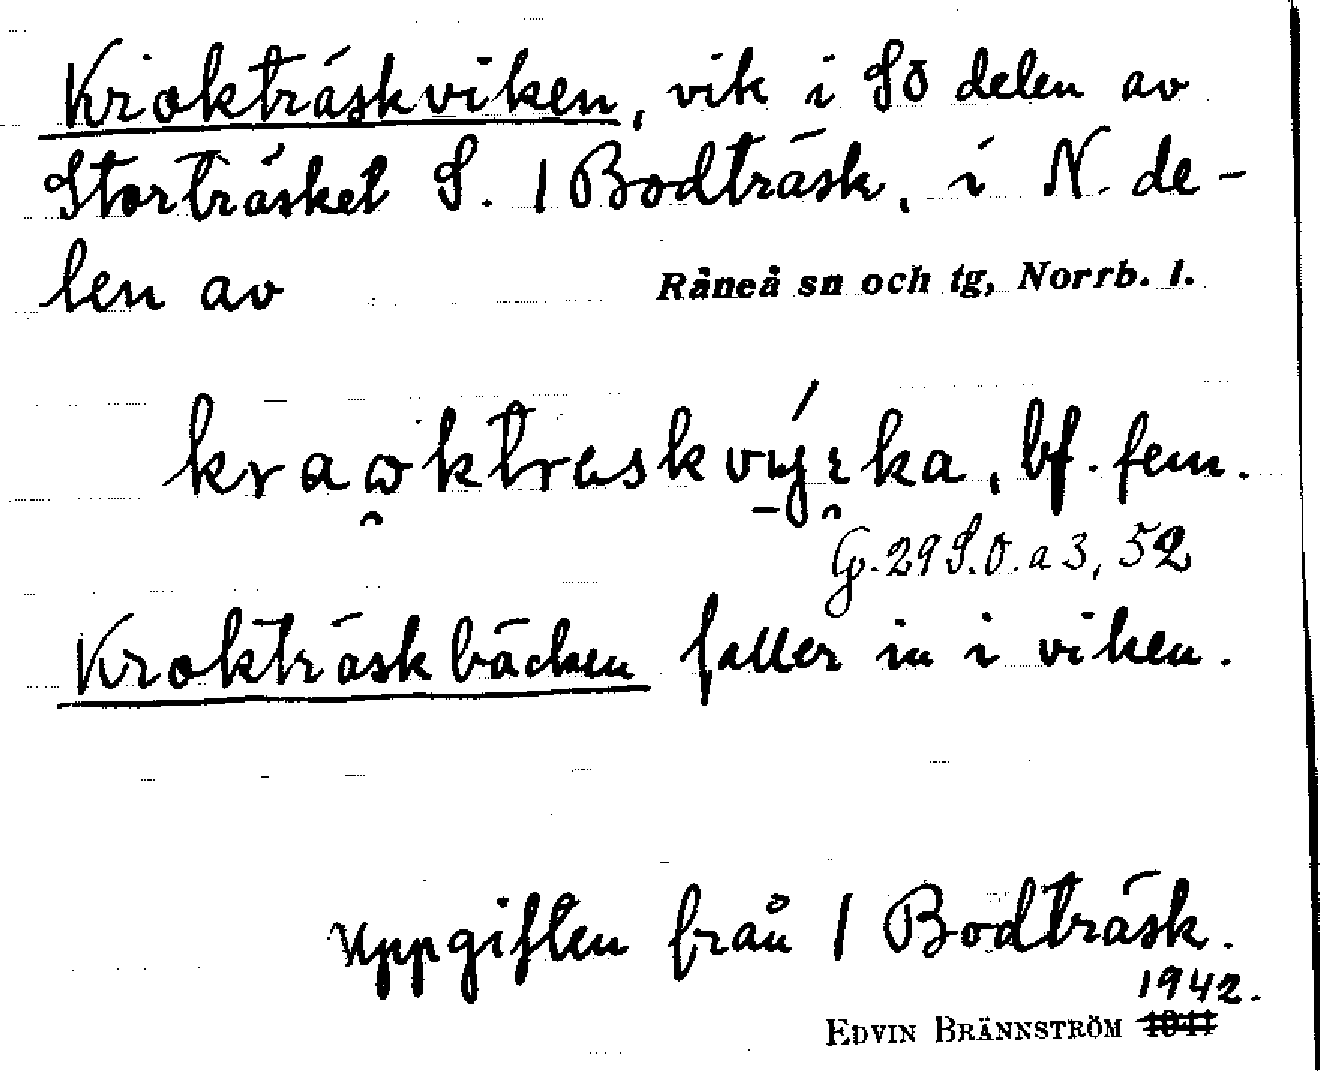 Krokträskviken, vik i SÖ delen av
Storträsket S. 1 Bodträsk, i N. de-
len av Råneå sn och tg, Norrb. l.
bf. fem.
G. 29 S.O. a 3, 52
Krokträskbäcken faller in i viken.
Uppgiften från 1 Bodträsk.
1942.
EDVIN BRÄNNSTRÖM 1941